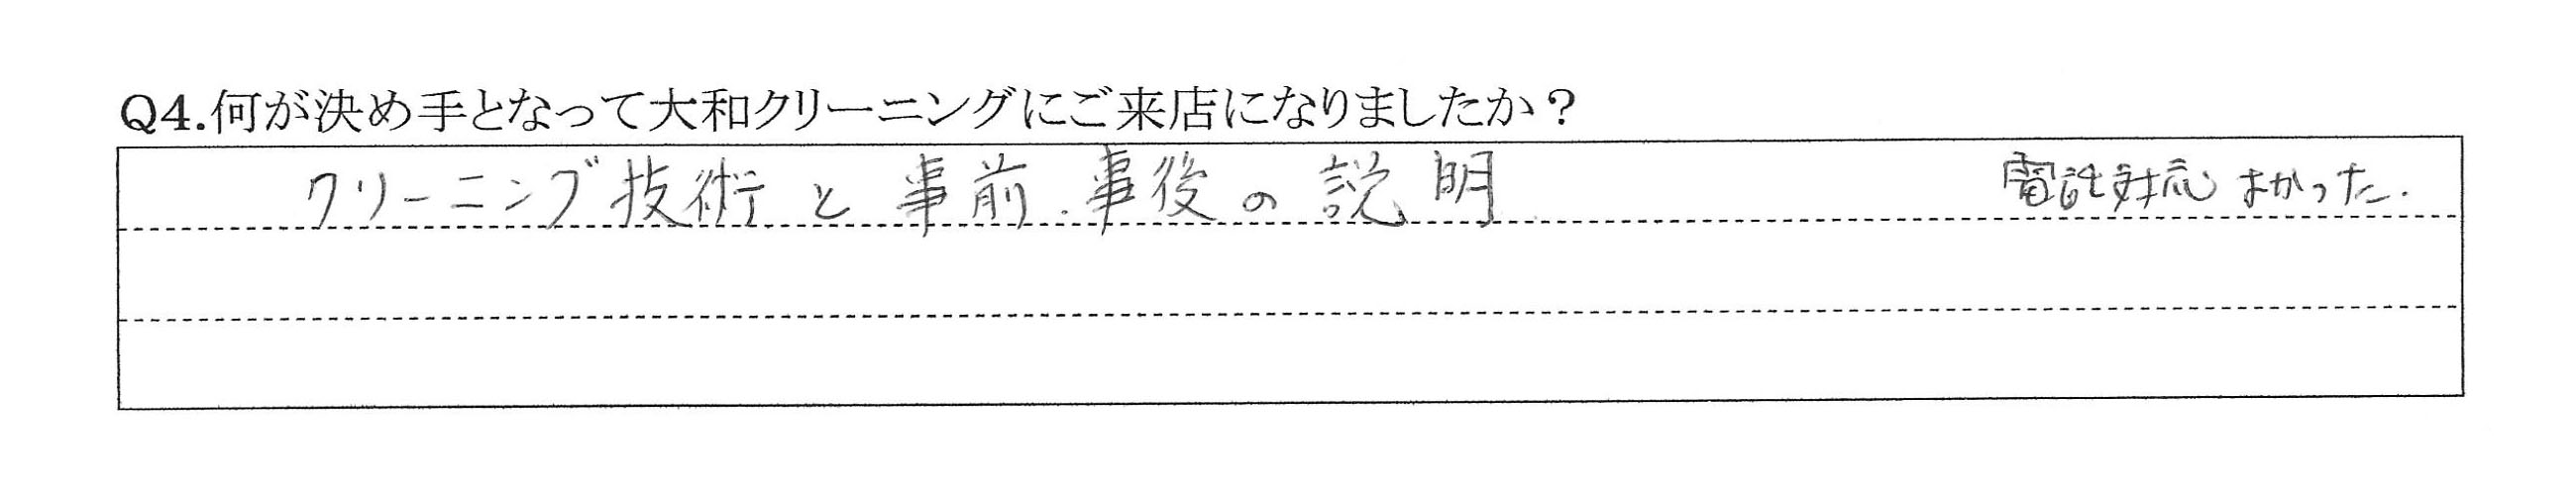 Q4.何が決め手となって大和クリーニングにご来店になりましたか？
クリーニング技術と事前.事後の説明 電話対応よかった.